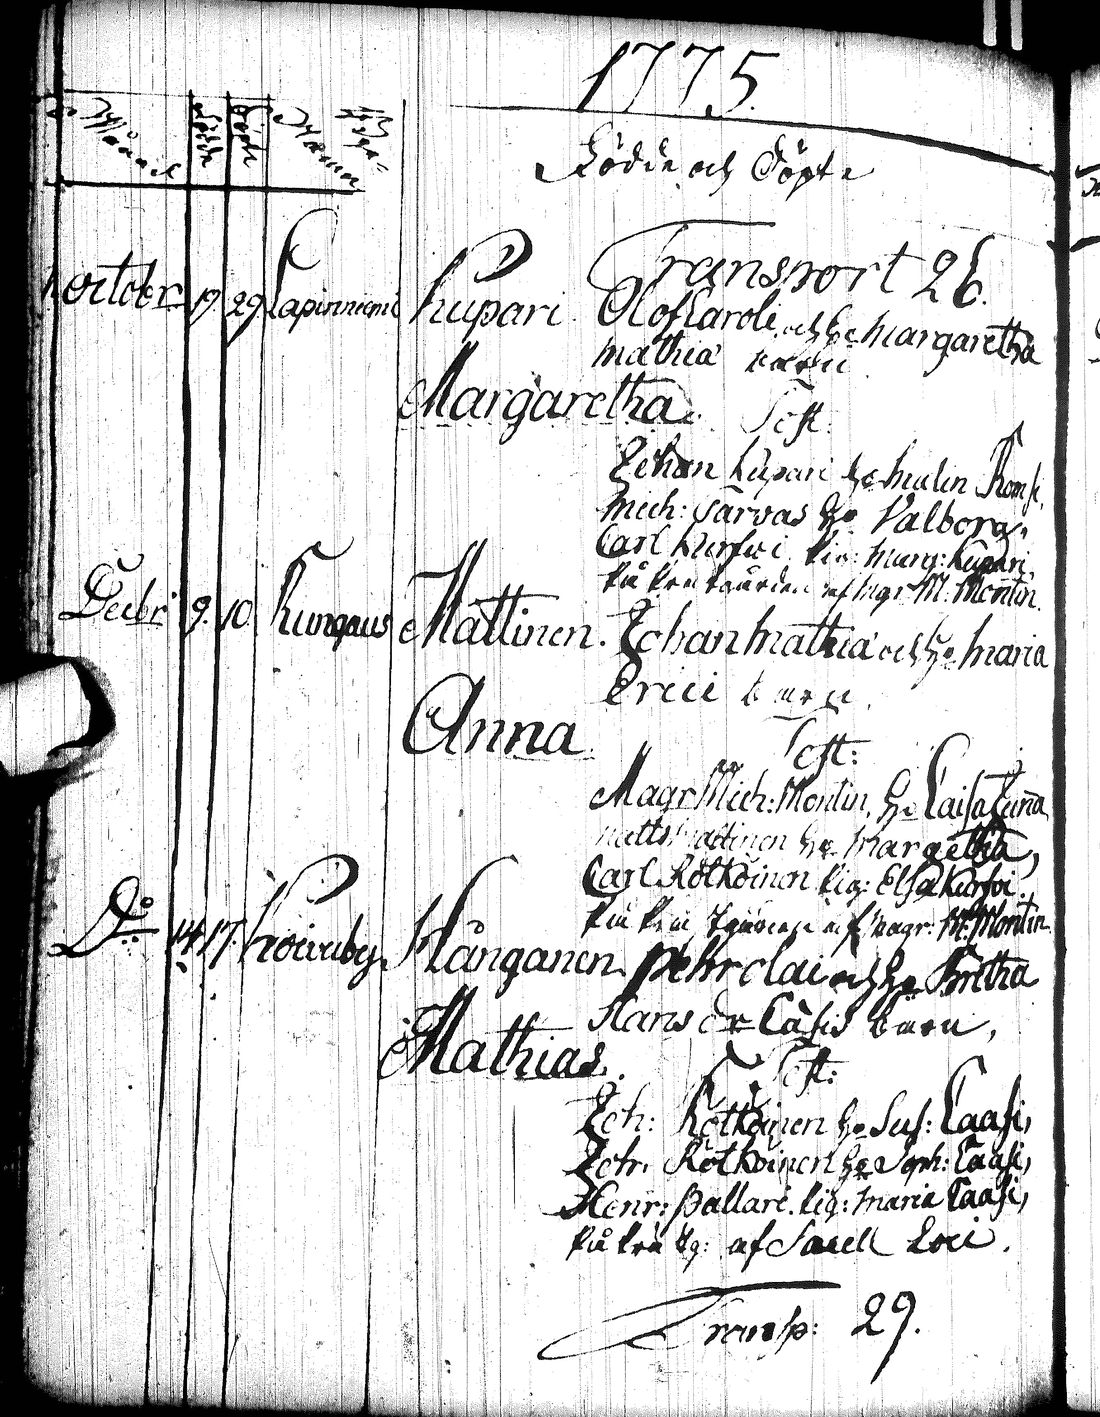 1775.
Månad Födde Döpte Namn
Födde och Döpte
Transport 26.
October 19. 29. Lapinniemi Kupari Olof Caroli och h: Margaretha
Mathiæ barn
Margaretha. Test:
Johan Kupari h: Malin Romsi,
Mich: Sarvas h: Valbora,
Carl Kurfwi pig: Marg: Kupari
af Magr M. Montin.
Decbr 9. 10. Kungaus Mattinen. Johan Mathiæ och h: Maria
Erici barn.
Anna Test:
Magr Mich: Montin, h: Caisa
Matts Mattinen h: Margetha,
Carl Rötköinen pig: Elsa Kurfwi.
af Magr: M: Montin.
Do 14. 17. Koiriby Hånganen Pehr Olai och h: Bretha
Hans dr Casis barn,
Mathias. Test:
Joh: Rötköinen h: Sus: Caasi,
Joh: Rötköinen h: Soph: Caasi,
Henr: Pallari. pig: Maria Caasi,
af Sacell Loci.
Transp: 29.